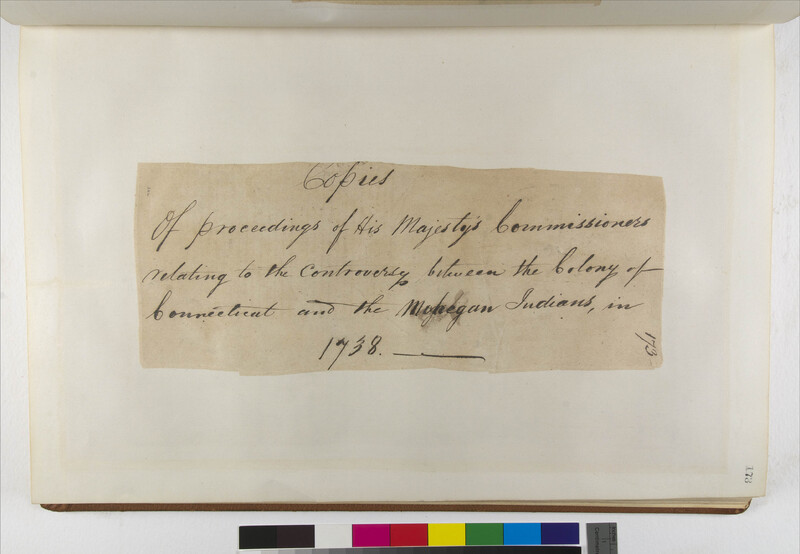 Copies
Of proceedings of His Majesty's Commissioners
relating to the controversy between the Colony of
Connecticut and the Mohegan Indians, in
1738.
173
173